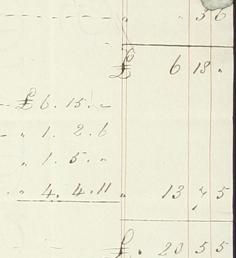 " " 6
£ 6 18 "
£6. 15. "
" 1. 2. 6
" 1. 5. "
" 4. 4. 11 " 13 7 5
£. 20 5 5